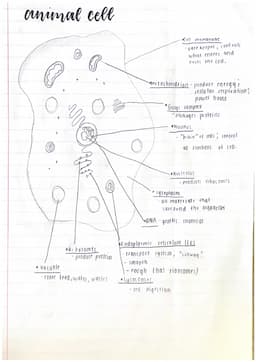 animal cell
• cell membrane
- gatekeeper, controls
what enters and
exits the cell.
• mitochondrion - produce energy;
cellular respiration;
power house
• golgi complex
- packages proteins
• Nucleus
- "brain" of cell; control
all contents of cell.
• nucleolus
- produces ribosomes
• cytoplasm
- all materials that
surround the organelles
• DNA - genetic material
• Endoplasmic reticulum (ER)
- transport system,
- smooth
- rough (has ribosomes)
• Ribosomes
- produce protein
• vacuole
- store food, water, wastes
• Lysosomes
- cell digestion